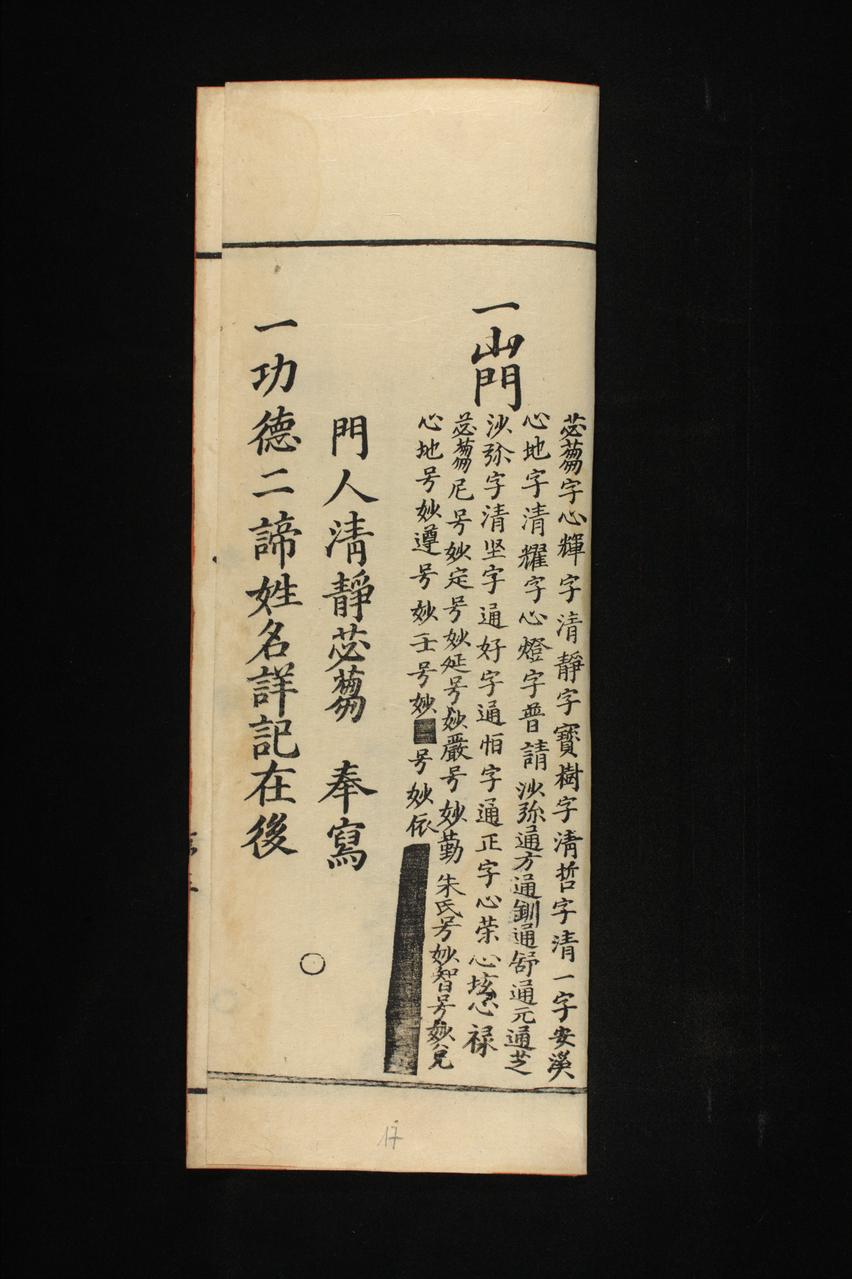 一山門
苾蒭字心輝字清靜字寶樹字清哲字清一字安漢
心地字清耀字心燈字普請沙弥通方通釧通舒通元通芝
沙弥字清坚字通好字通怕字通正字心荣心垓心禄
苾蒭尼号妙定号妙延号妙嚴号妙勤朱氏号妙智号妙兑
心地号妙遵号妙壬号妙号妙依
門人清靜苾蒭 奉寫
一功德二諦姓名詳記在後
17